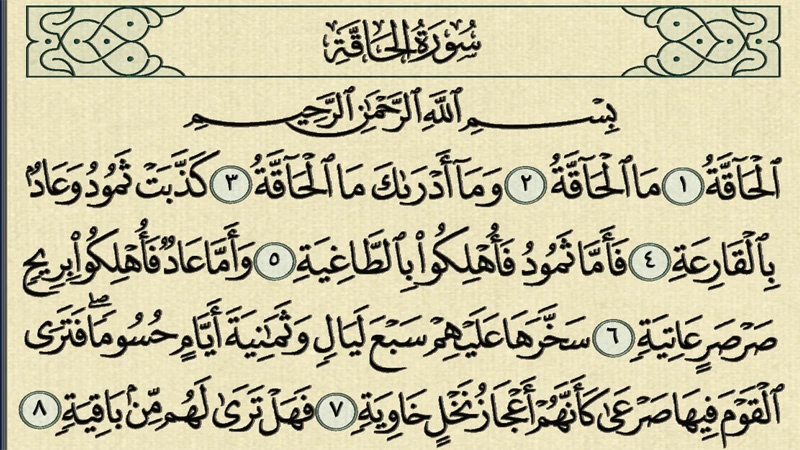 سُورَةُ الحَاقَّةِ
بِسْمِ ٱللَّهِ ٱلرَّحْمَٰنِ ٱلرَّحِيمِ
ٱلْحَآقَّةُ ١ مَا ٱلْحَآقَّةُ ٢ وَمَآ أَدْرَىٰكَ مَا ٱلْحَآقَّةُ ٣ كَذَّبَتْ ثَمُودُ وَعَادٌۢ
بِٱلْقَارِعَةِ ٤ فَأَمَّا ثَمُودُ فَأُهْلِكُوا۟ بِٱلطَّاغِيَةِ ٥ وَأَمَّا عَادٌ فَأُهْلِكُوا۟ بِرِيحٍ
صَرْصَرٍ عَاتِيَةٍ ٦ سَخَّرَهَا عَلَيْهِمْ سَبْعَ لَيَالٍ وَثَمَٰنِيَةَ أَيَّامٍ حُسُومًا ۖ فَتَرَى
ٱلْقَوْمَ فِيهَا صَرْعَىٰ كَأَنَّهُمْ أَعْجَازُ نَخْلٍ خَاوِيَةٍ ٧ فَهَلْ تَرَىٰ لَهُم مِّنۢ بَاقِيَةٍ ٨